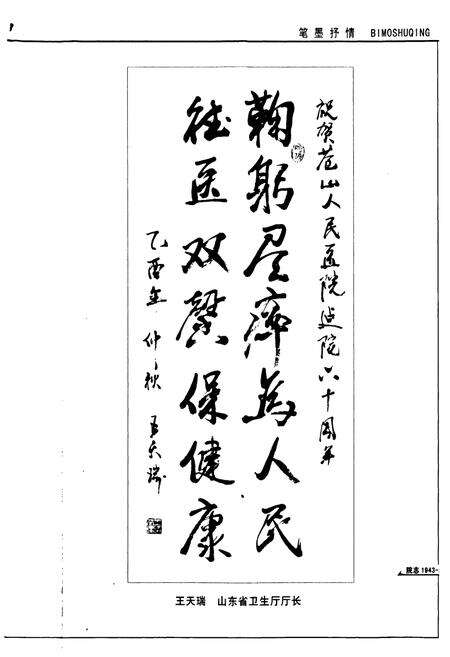 笔墨抒情 BIMOSHUQING
祝贺苍山人民医院建院六十周年
鞠躬尽瘁为人民
德医双馨保健康
乙酉年 仲秋 王天瑞
院志1943-
王天瑞 山东省卫生厅厅长